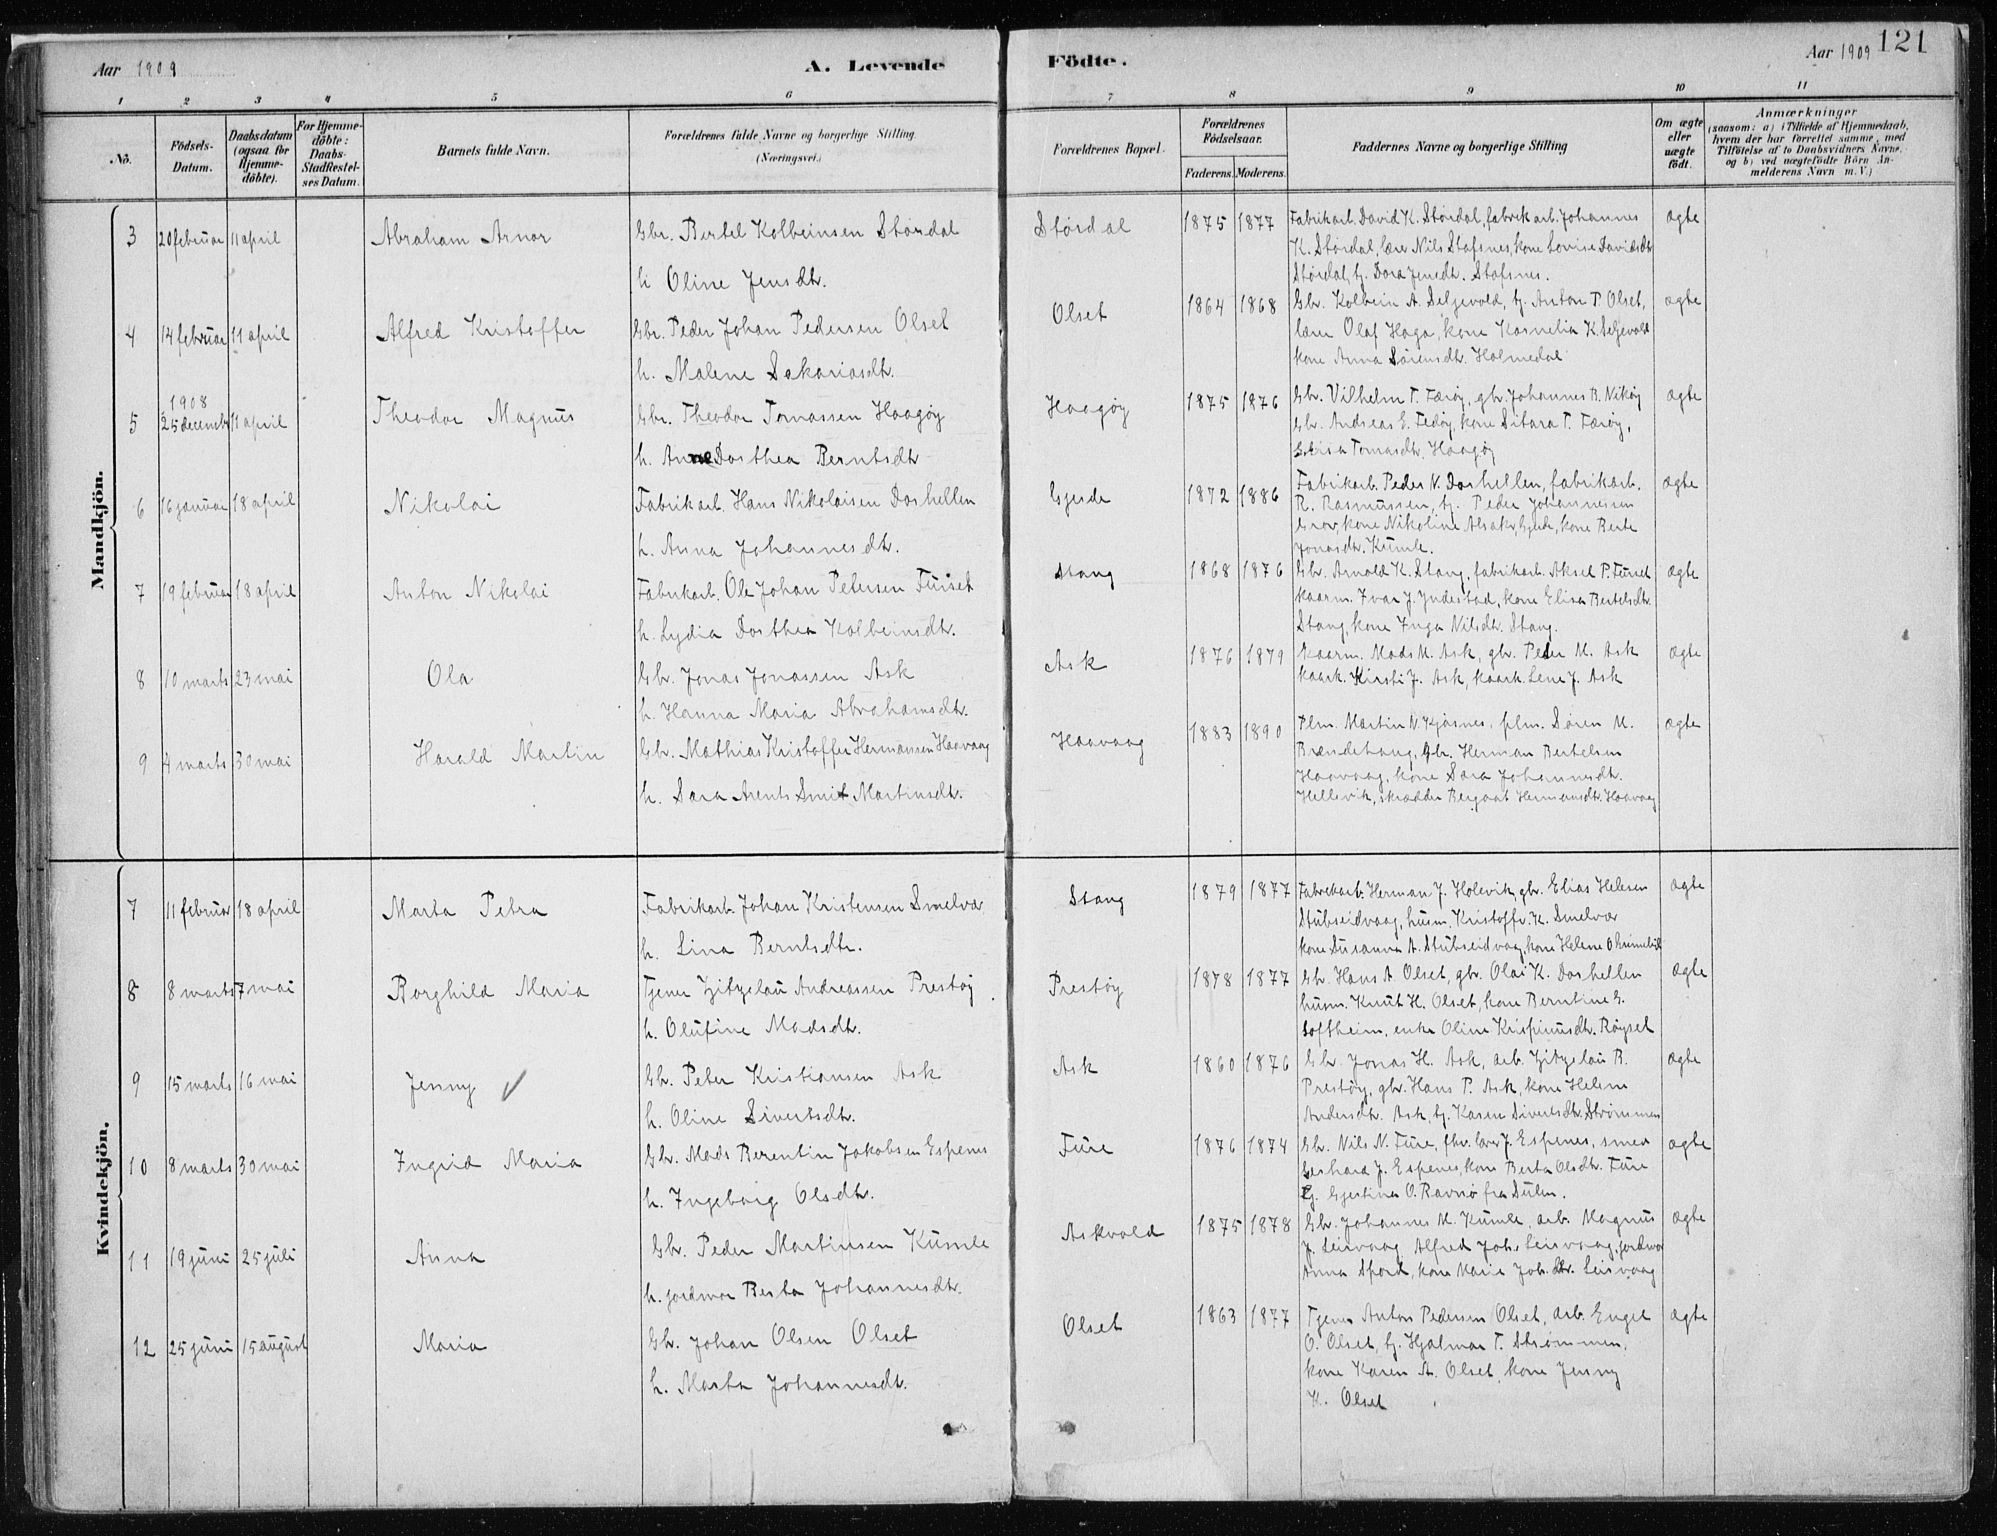 121
Aar 1909
A. Levende
Födte.
Aar 1909
1 2 3 4 5 6 7 8 9 10 11
No.
Födsels-Datum.
Daabsdatum (ogsaa for Hjemme-döbte).
For Hjemme-döbte: Daabs-Stadfæstel-ses Datum.
Barnets fulde Navn.
Forældrenes fulde Navne og borgerlige Stilling. (Næringsvei.)
Forældrenes Bopæl.
Forældrenes Födselsaar.
Faderens. Moderens.
Faddernes Navne og borgerlige Stilling
Om ægte eller uægte födt.
Anmærkninger
(saasom: a) i Tilfælde af Hjemmedaab, hvem der har forrettet samme, med Tilföielse af to Daabsvidners Navne, og b) ved uægtefödte Börn An-melderens Navn m. V.)
Mandkjön.
3 20 februar 11 april Abraham Arnor Gbr. Bertel Kolbeinsen Stördal Stördal 1875 1877 Fabrikarb. David K. Stördal, fabrikarb. Johannes ægte
K. Stördal, lærer Nils Stafsnes, kone Lovise Davidsdtr.
h. Oline Jensdtr. Stördal, tj. Dora Jensdtr. Stafsnes.
4 14 februar 11 april Alfred Kristoffer Gbr. Peder Johan Pedersen Olset Olset 1864 1868 Gbr. Kolbein A. Seljevold, tj. Anton P. Olset, ægte
lærer Olaf Haga, kone Kornelia K. Seljevold
h. Malene Sakariasdtr. kone Anna Sörensdtr. Holmedal
1908
5 25 decembr 11 april Theodor Magnus Gbr. Theodor Tomassen Haagöy Haagöy 1875 1876 Gbr. Vilhelm T. Færöy, gbr. Johannes B. Niköy ægte
Gbr. Andreas E. Fedöy, kone Sitara T. Færöy,
h. Anne Dorthea Berntsdtr Tomasdtr. Haagöy
6 16 januar 18 april Nikolai Fabrikarb. Hans Nikolaisen Doshellen Gjerde 1872 1886 Fabrikarb. Peder N. Doshellen, fabrikarb. ægte
R. Rasmussen, tj. Peder Johannessen
h. Anna Johannesdtr. Grov, kone Nikoline Alsaker Gjerde, kone Berte
Jonasdtr. Kumle.
7 19 februar 18 april Anton Nikolai Fabrikarb. Ole Johan Petersen Furset Stang 1868 1876 Gbr. Arnold K. Stang, fabrikarb. Aksel P. Furset ægte
kaarm. Ivar J. Yndestad, kone Elisa Bertelsdtr.
h. Lydia Dorthea Kolbeinsdtr. Stang, kone Inga Nilsdtr. Stang.
8 10 marts 23 mai Ola Gbr. Jonas Jonassen Ask Ask 1876 1879 Kaarm. Mads M. Ask, gbr. Peder M. Ask ægte
h. Hanna Maria Abrahamsdtr. kaark. Kirsti J. Ask, kaark. Lene J. Ask
9 4 marts 30 mai Harald Martin Gbr. Mathias Kristoffer Hermansen Haavaag Haavaag 1883 1890 Plm. Martin N. Kjösnes, plm. Sören M. ægte
Brændehaug, Gbr. Herman Bertelsen
h. Sara Arents Smit Martinsdtr. Haavaag, kone Sara Johannesdtr.
Hellevik, skrædder Hermansdtr. Haavaag
Kvindekjön.
7 11 februar 18 april Marta Petra Fabrikarb. Johan Kristensen Smelvær Stang 1879 1877 Fabrikarb. Herman J. Holevik, gbr. Elias Helesen ægte
Stubseidvaag, husm. Kristoffer K. Smelvær
h. Lina Berntsdtr. kone Susanna A. Stubseidvaag, kone Helene O.
8 8 marts 7 mai Borghild Maria Tjener Zitzelau Andreassen Prestöy Prestöy 1878 1877 Gbr. Hans A. Olset, gbr. Olai K. Doshellen ægte
husm. Knut H. Olset, kone Berntine G.
h. Olufine Madsdtr. Softheim, enke Oline Krispinusdtr. Röyset
9 15 marts 16 mai Jenny ✓ Gbr. Peter Kristiansen Ask Ask 1860 1876 Gbr. Jonas H. Ask, arb. Zitzelau B. ægte
Prestöy, gbr. Hans P. Ask, kone Helene
h. Oline Sivertsdtr. Andersdtr. Ask, tj. Karen Sivertsdtr. Strömmen
10 8 marts 30 mai Ingrid Maria Gbr. Mads Berentin Jakobsen Espenes Fure 1876 1874 Gbr. Nils N. Fure, fhv. lærer J. Espenes, smed ægte
Gerhard J. Espenes, kone Berta Olsdtr. Fure
h. Ingeborg Olsdtr. tj. Gjertine O. Ravnö fra Sulen.
11 19 juni 25 juli Anna Gbr. Peder Martinsen Kumle Askvold 1875 1878 Gbr. Johannes M. Kumle, arb. Magnus ægte
J. Leirvaag Alfred Joh. Leirvaag, jordmor
h. jordmor Berta Johannesdtr. Anna Spord, kone Marie Joh.dtr. Leirvaag
12 25 juni 15 august Maria Gbr. Johan Olsen Olset Olset 1863 1877 Tjener Anton Pedersen Olset, arb. Engel ægte
O. Olset, tj. Hjalmar T. Strömmen,
h. Marta Johannesdtr. kone Karen A. Olset, kone Jenny
K. Olset